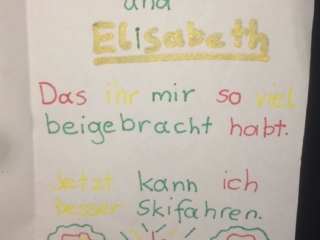 und
Elisabeth
Das ihr mir so viel
beigebracht habt.
Jetzt kann ich
besser Skifahren.